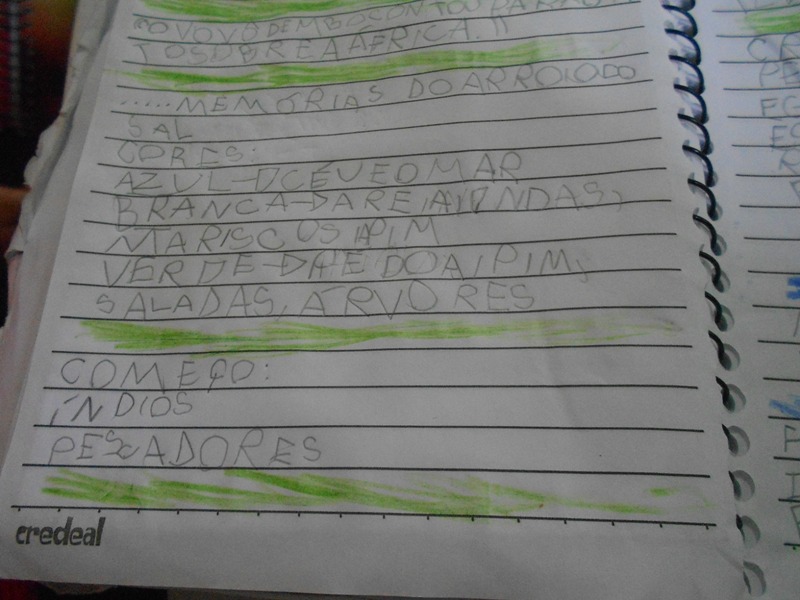 O VOVÔ DEMBO CONTOU PARA
TO SOBRE A ÁFRICA.
.....MEMÓRIAS DO ARROIO DO
SAL
CORES:
AZUL-DCÉU E O MAR
BRANCA-DA AREIA, ONDAS,
MARISCOS AIPIM
VERDE-DA DO AIPIM,
SALADAS, ÁRVORES
COMEÇO:
ÍNDIOS
PESCADORES
credeal